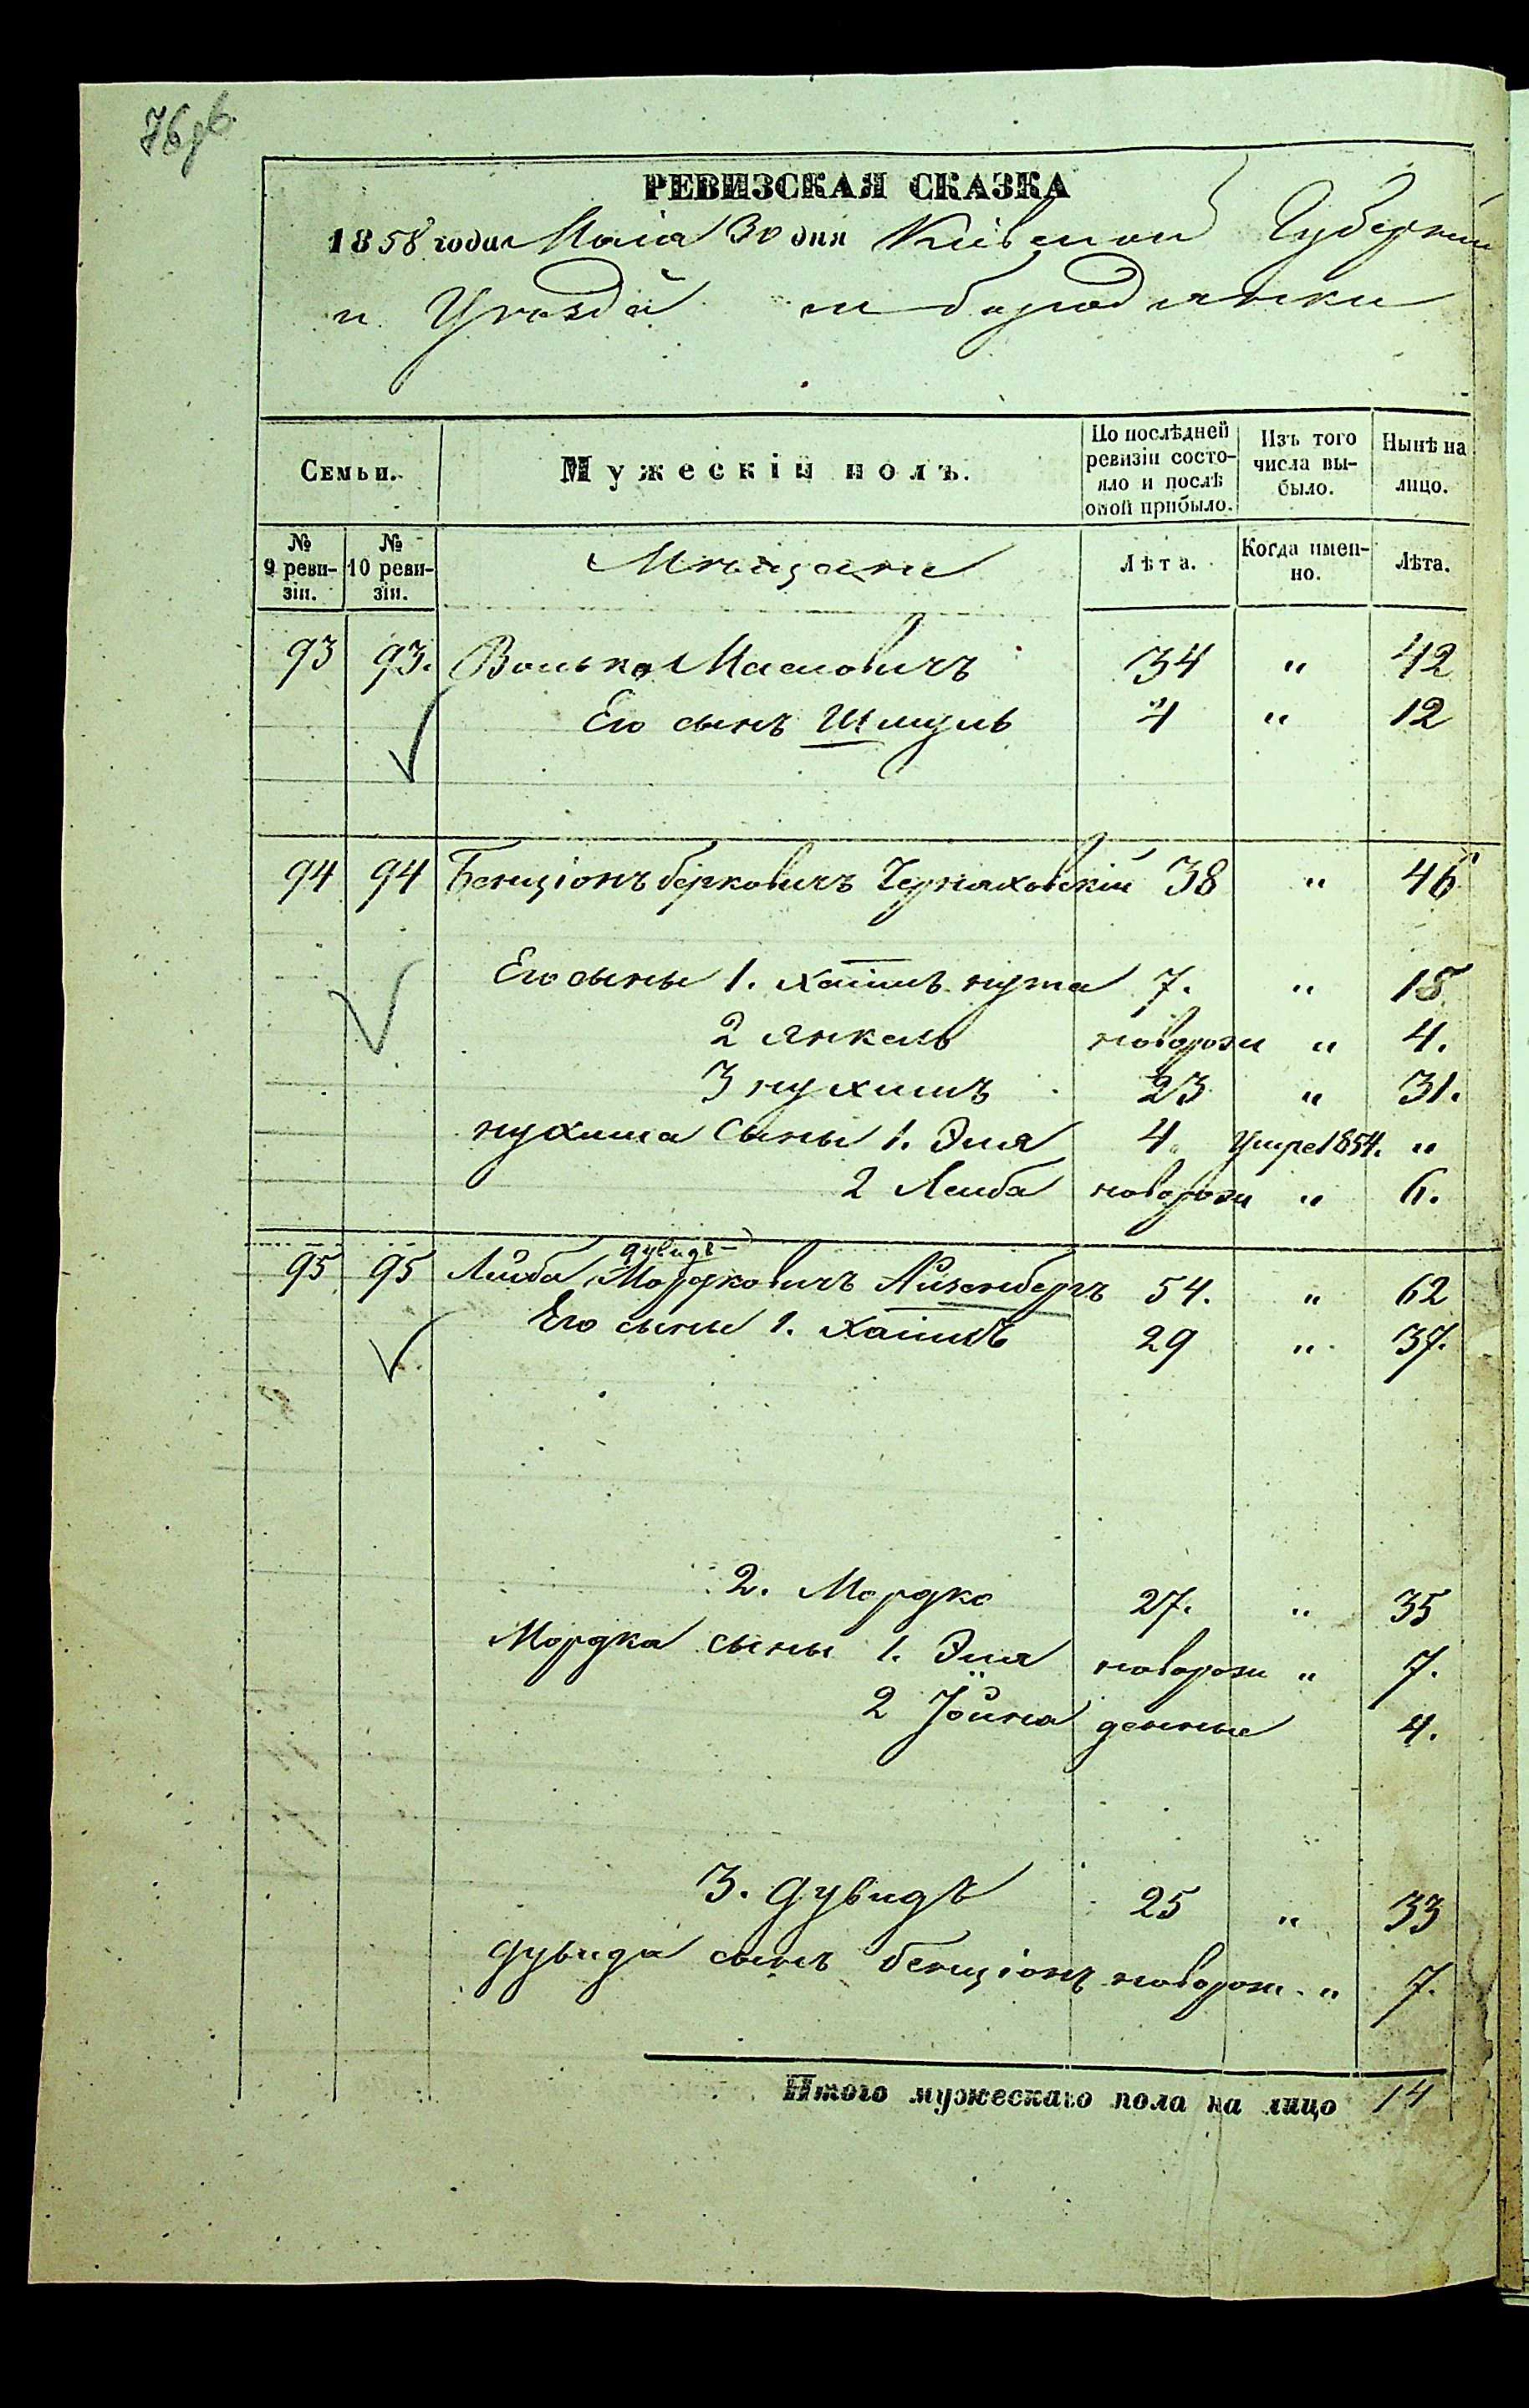 76об.
РЕВИЗСКАЯ СКАЗКА
1858 года Маія 30 дня Кіевской Губерніи
и Уезда м бородянки
Семьи.
Мужескій полъ.
По послѣдней ревизіи состояло и послѣ оной прибыло.
Изъ того числа выбыло.
Нынѣ на лицо.
№ 9 ревизіи.
№ 10 ревизіи.
Мещане
Лѣта.
Когда именно.
Лѣта.
93 93. Волько 34 " 42
Его сынъ Шмуль 4 " 12
94 94 Бенціонъ берковичъ Черняховскій 38 " 46
Его сыны 1. хаимъ нута 7. " 15
2 янкель новорож " 4.
3 нухимъ 23 " 31.
нухима Сыны 1. Эля 4 Умре 1854. "
2 Леиба новорож " 6.
дувидъ
95 95 Лейба Мордковичъ Айзенбергъ 54. " 62
Его сыны 1. хаимъ 29 " 37.
2. Мордко 27. " 35
Мордка сыны 1. Эля новорож " 7.
2 Іойна денные 4.
3. дувидъ 25 " 33
дувида сынъ бенціонъ новорож. " 7.
Итого мужескаго пола на лицо 14